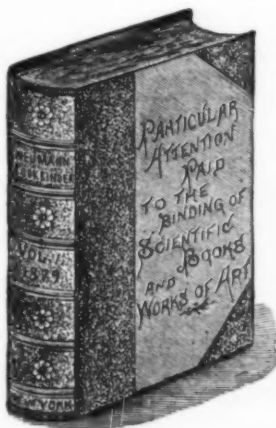 NEUMANN
BOOKBINDER
VOL. VI.
1879
NEW YORK
PARTICULAR
ATTENTION
PAID
TO THE
BINDING OF
SCIENTIFIC
BOOKS
AND
WORKS OF ART